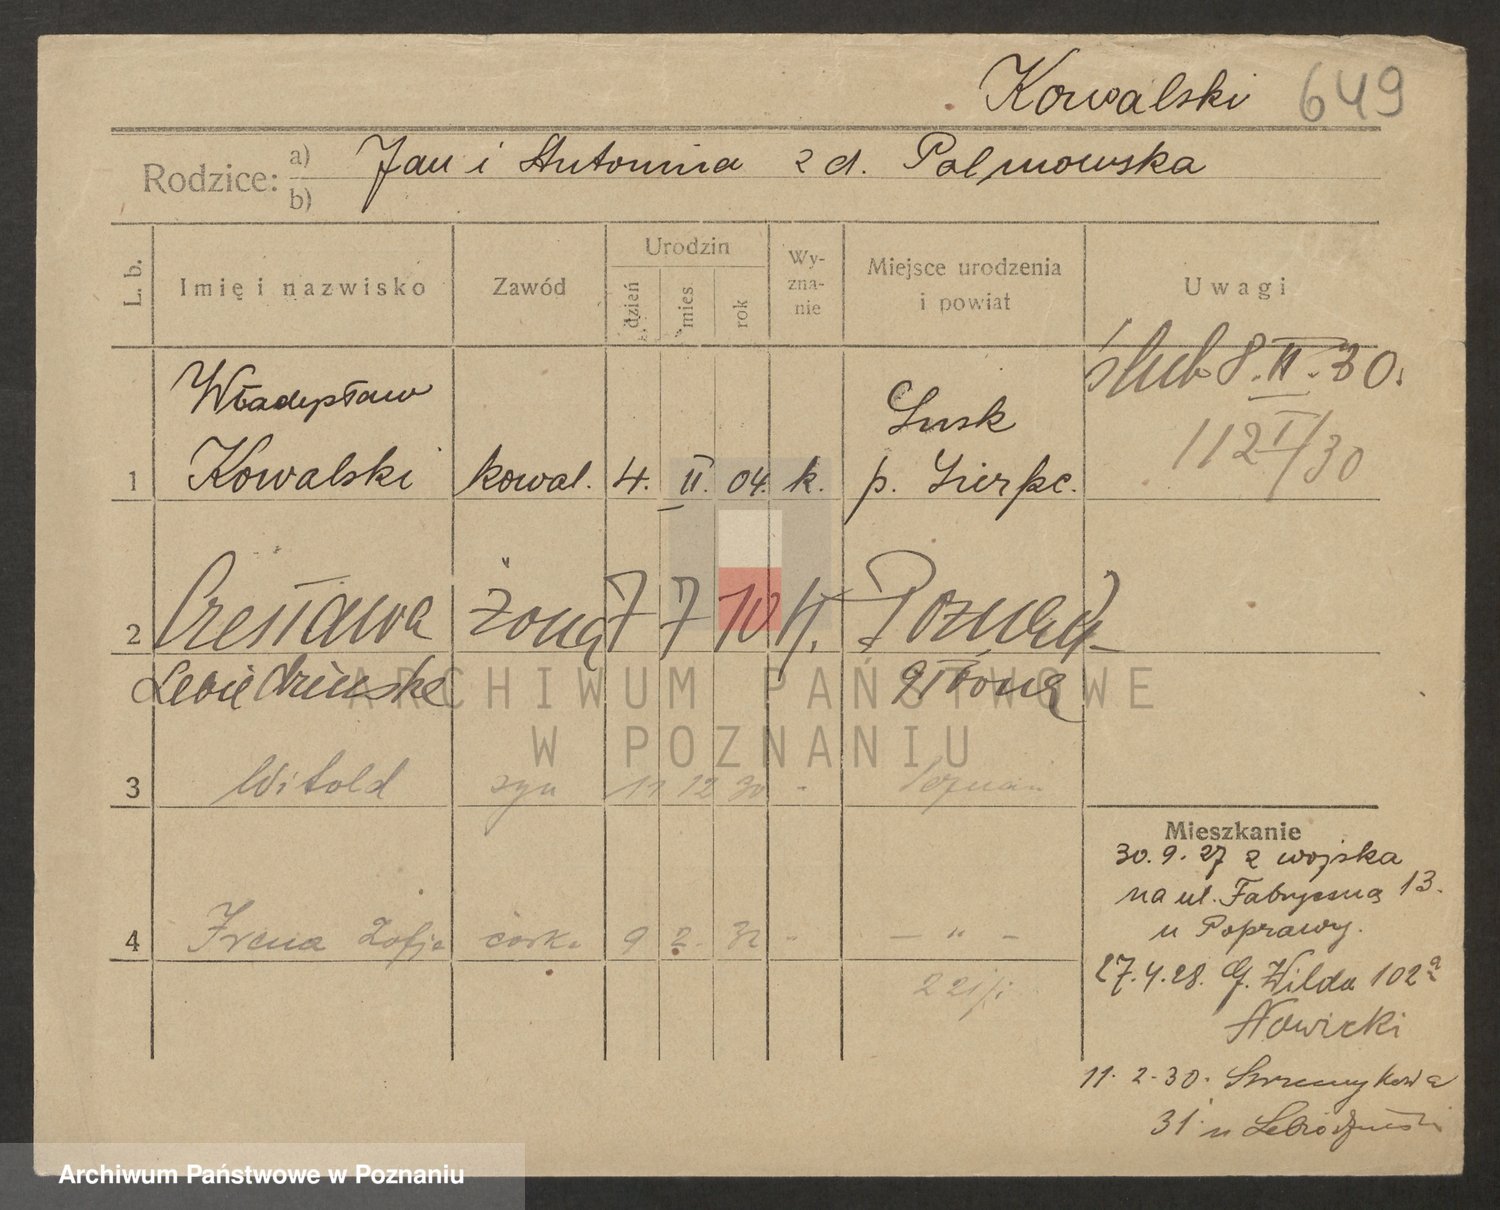 Kowalski 649
Rodzice: a) b) Jan i Antonina z d. Palmowska
L. b. Imię i nazwisko Zawód Urodzin dzień mies rok Wyznanie Miejsce urodzenia i powiat Uwagi
ślub 8.II.30.
112 I/30
Władysław Łusk
1 Kowalski kowal. 4. II. 04. k. p. Sierpc.
2 Czesława żona 7 7 10 k. Poznań
główna
3 Witold syn 11 12 30 - Poznań
Mieszkanie
30.9.27 z wojska
na ul. Fabryczną 13.
u Poprawy.
4 Irena Zofja córka 9 2. 32 - — " —
27.4.28. G. Wilda 102a
Nowicki
11.2.30.
31 u
ARCHIWUM PAŃSTWOWE
W POZNANIU
Archiwum Państwowe w Poznaniu